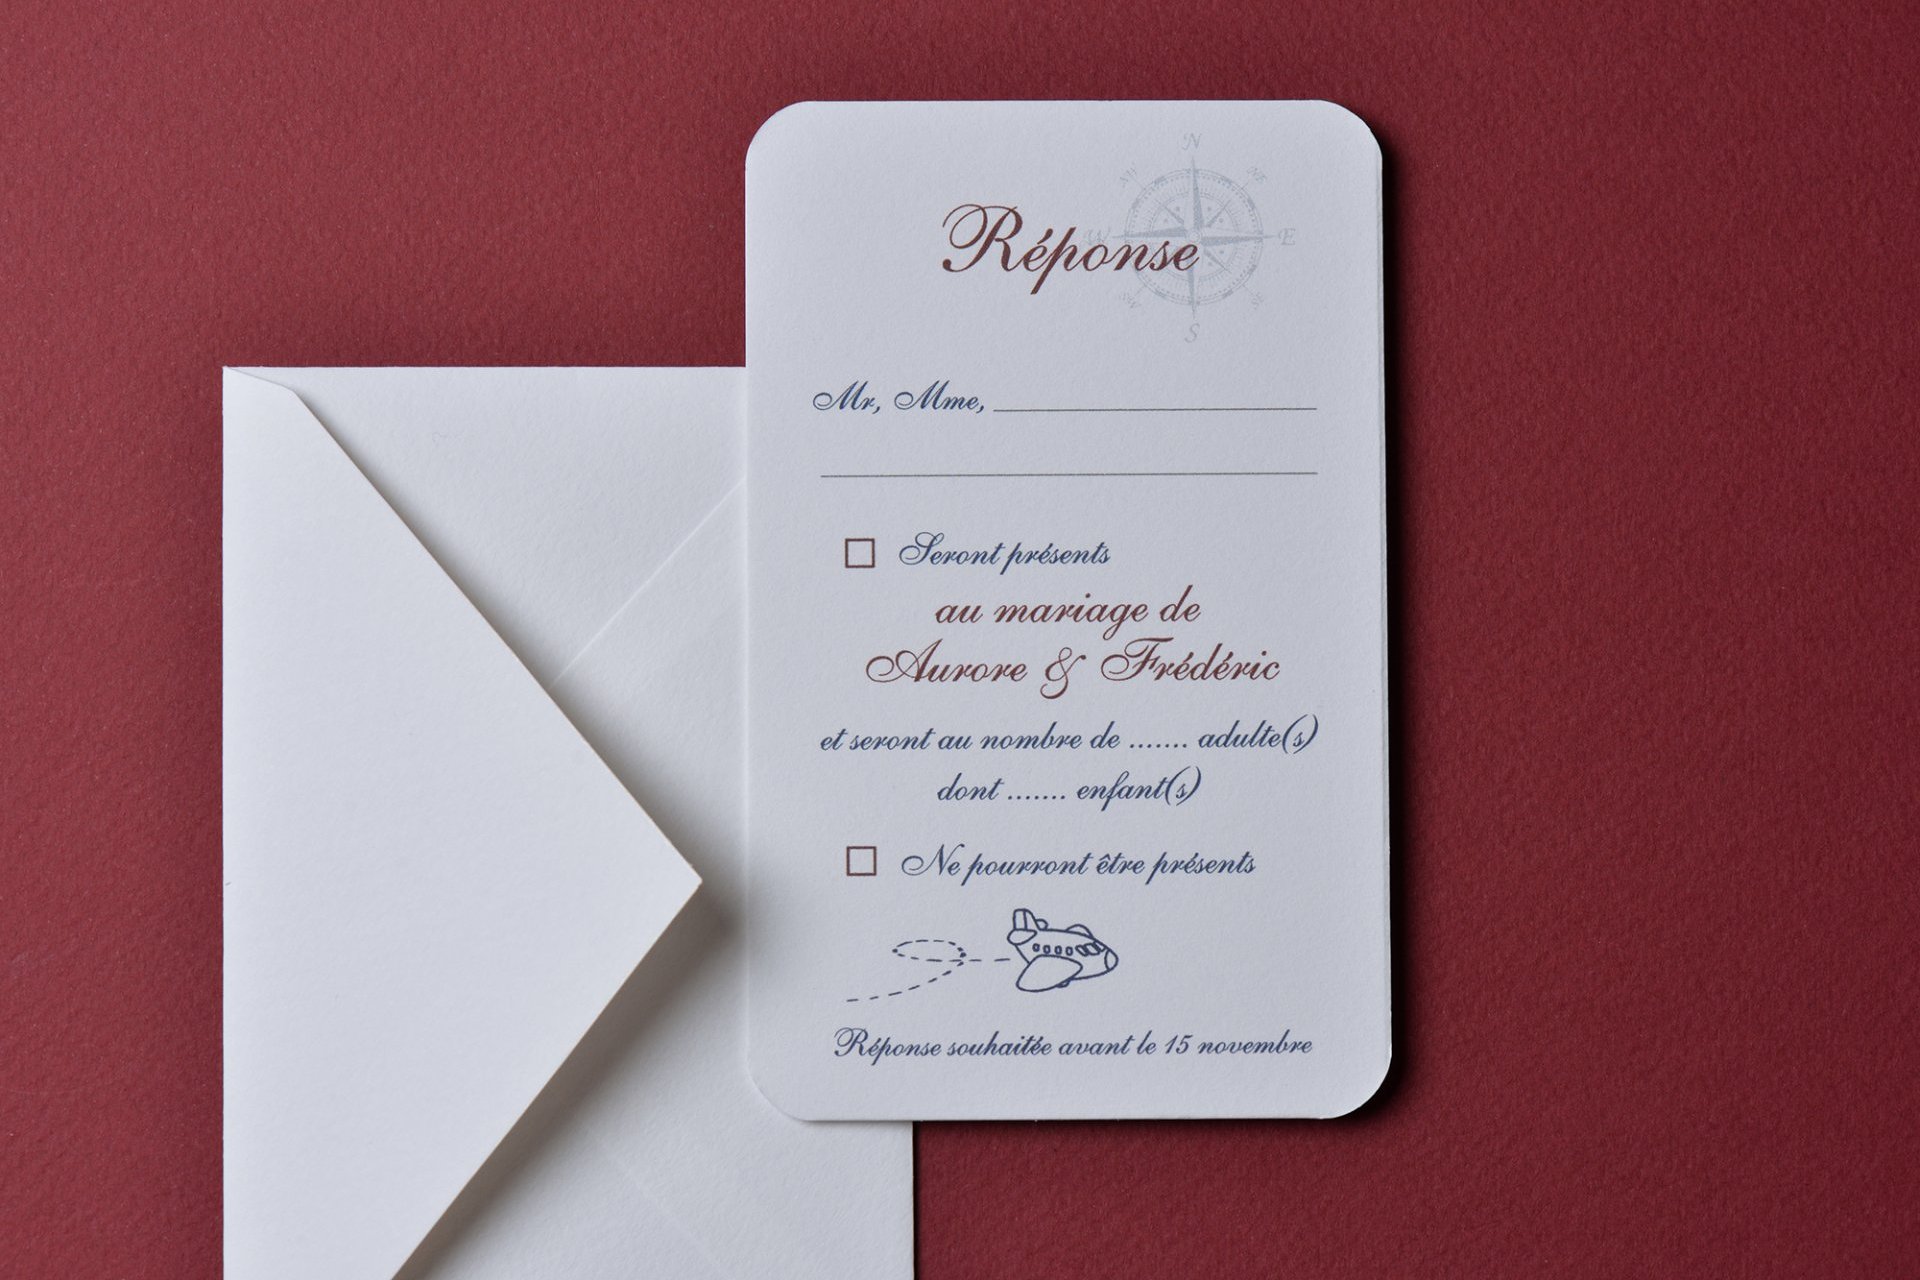 N
NW NE
W E
SW SE
S
Réponse
Mr, Mme,
Seront présents
au mariage de
Aurore & Frédéric
et seront au nombre de ....... adulte(s)
dont ....... enfant(s)
Ne pourront être présents
Réponse souhaitée avant le 15 novembre